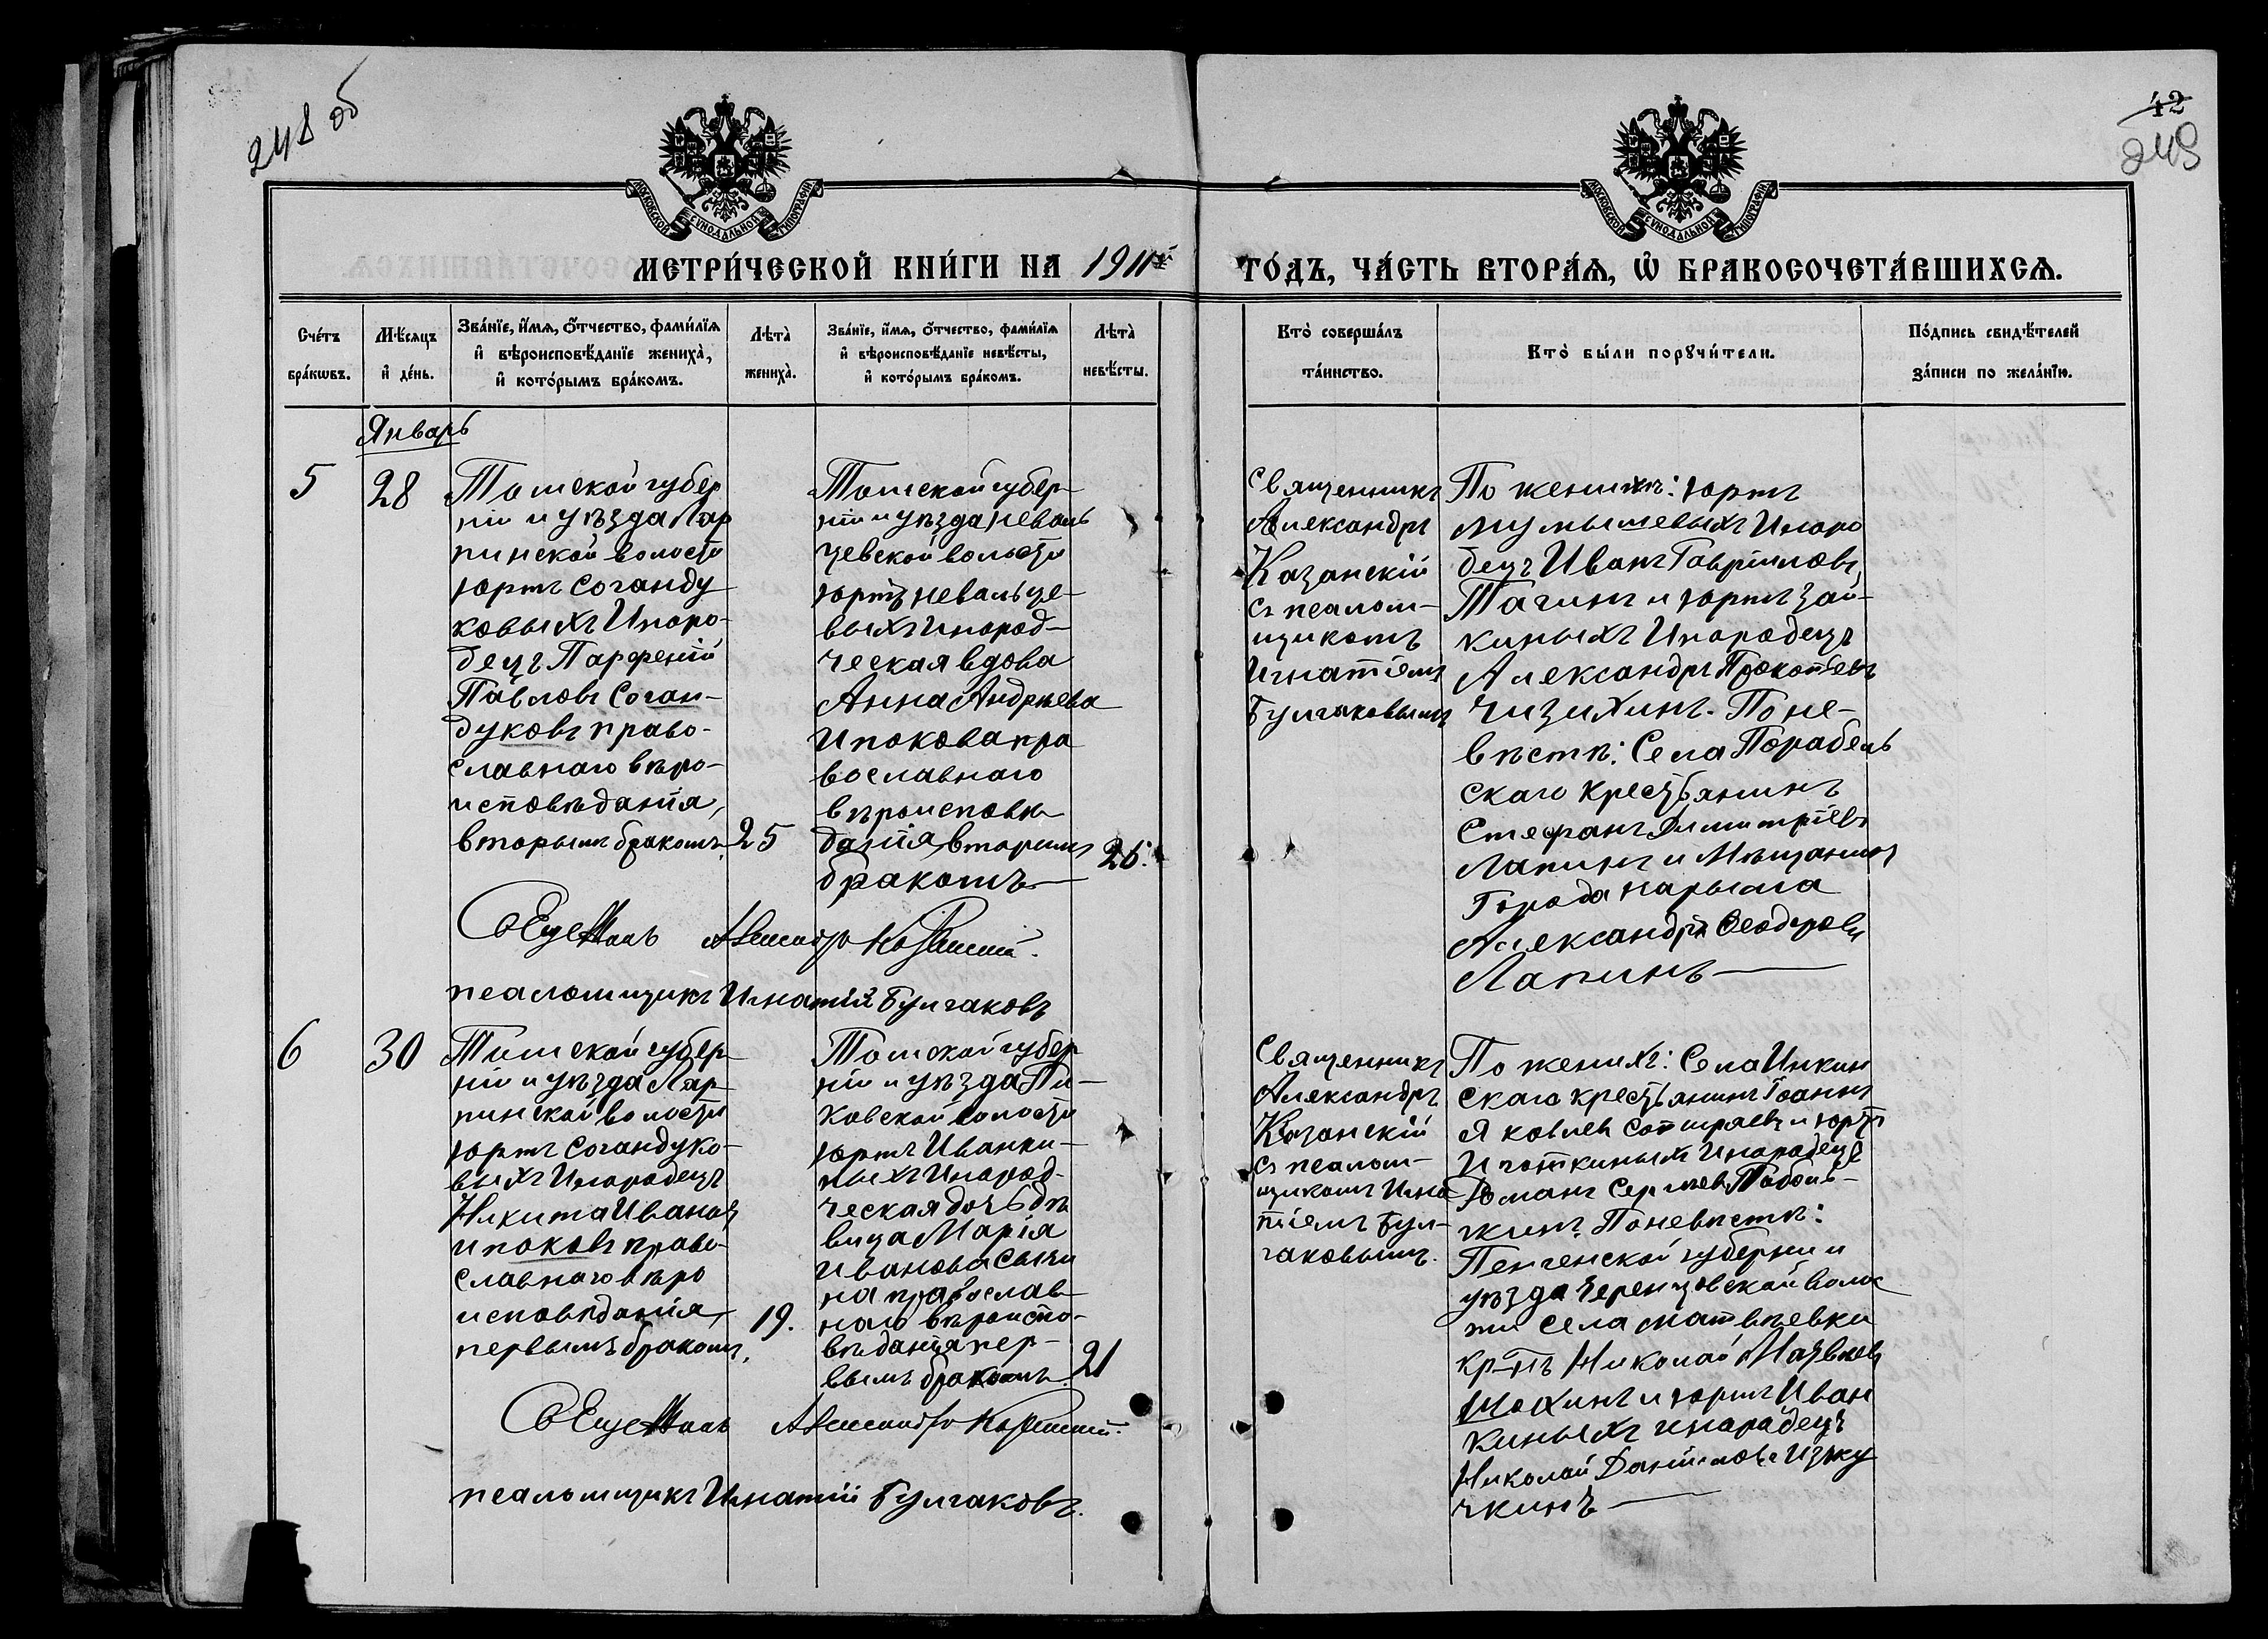 248 об
42
249
МОСКОВСКОЙ СѴНОДАЛЬНОЙ ТИПОГРАФІИ
МОСКОВСКОЙ СѴНОДАЛЬНОЙ ТИПОГРАФІИ
МЕТРИ́ЧЕСКОЙ КНИ́ГИ НА 1911й
ГО́ДЪ, ЧА́СТЬ ВТОРА́Я, Ѡ҆ БРАКОСОЧЕТА́ВШИХСѦ.
Сче́тъ
бра́кѡвъ.
Мѣ́сѧцъ
и҆ де́нь.
Зва́нїе, и҆́мѧ, ѻ҆́тчество, фами́лїѧ
и҆ вѣроисповѣ́данїе жениха̀,
и҆ кото́рымъ бра́комъ.
Лѣта̀
жениха̀.
Зва́нїе, и҆́мѧ, ѻ҆́тчество, фами́лїѧ
и҆ вѣроисповѣ́данїе невѣ́сты,
и҆ кото́рымъ бра́комъ.
Лѣта̀
невѣ́сты.
Кто̀ соверша́лъ
та́инство.
Кто̀ бы́ли порꙋчи́тели.
По́дпись свидѣ́телей
за́писи по жела́нїю.
Январь
5
28
Томской губер
ніи и уѣзда Лар
пинской волости
юртъ Соганду
ковыхъ Иноро-
децъ Парфеній
Павловъ Соган-
дуковъ право-
славнаго вѣро-
исповѣданія,
вторымъ бракомъ.
25
Томской губер-
ніи и уѣзда Неваль
цевской волости
юртъ Невальце-
выхъ инород-
ческая вдова
Анна Андрѣева
Ипокова пра
вославнаго
вѣроисповѣ
данія, вторымъ
бракомъ
26.
Священникъ
Александръ
Казанскій
съ псалом-
щикомъ
Игнатіемъ
Булгаковымъ
По женихѣ: юртъ
Мумышевыхъ Иноро
децъ Иванъ Гавріиловъ
Тагинъ и юртъ Зай-
киныхъ Инородецъ
Александръ Прокопьевъ
Чизихинъ. По не-
вѣстѣ: Села Парабель
скаго крестьянинъ
Стефанъ Димитріевъ
Лапинъ и Мѣщанинъ
Города Нарыма
Александръ Ѳеодоровъ
Лапинъ
Александръ Казанскій.
псаломщикъ Игнатій Булгаковъ
6
30
Томской губер-
ніи и уѣзда Лар-
пинской волости
юртъ Согандуко-
выхъ Инородецъ
Никита Ивановъ
Ипоковъ право-
славнаго вѣро
исповѣданія,
первымъ бракомъ,
19.
Томской губер
ніи и уѣзда Пи-
ковской волости
юртъ Иванки-
ныхъ Инород-
ческая дочь дѣ
вица Марія
Иванова Сычи
на православ
наго вѣроиспо-
вѣданія пер-
вымъ бракомъ.
21
Священникъ
Александръ
Казанскій
съ псалом-
щикомъ Игна
тіемъ Бул-
гаковымъ.
По женихѣ: Села Инкин
скаго крестьянинъ Іоаннъ
Яковлевъ и юртъ
Иготкиныхъ Инородецъ
Романъ Сергѣевъ Тоболь-
жинъ. По невѣстѣ:
Пензенской губерніи и
уѣзда волос
ти села Матвѣевки
кр-нъ Николай Матвѣевъ
и юртъ Иван
киныхъ инородецъ
Николай Даниловъ Изъку
чкинъ
Александръ Казанскій.
псаломщикъ Игнатій Булгаковъ.